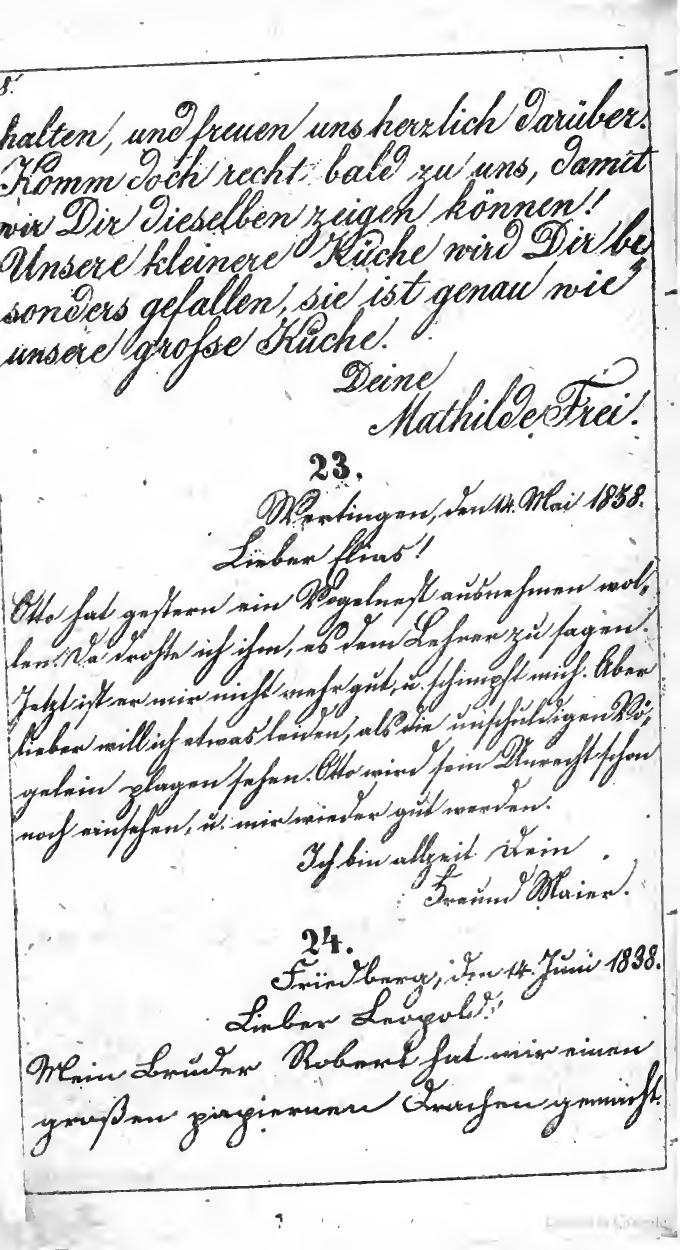 8.
halten, und freuen uns herzlich darüber.
Komm doch recht bald zu uns, damit
wir Dir dieselben zeigen können!
Unsere kleinere Küche wird Dir be
sonders gefallen, sie ist genau wie
unsere grosse Küche.
Deine
Mathilde Frei.
23.
Wertingen, den 14. Mai 1838.
Lieber Elias!
Otto hat gestern ein Vogelnest ausnehmen wol-
len. Da drohte ich ihm, es dem Lehrer zu sagen.
Jetzt ist er mir nicht mehr gut, u. schimpft mich. Aber
lieber will ich etwas leiden, als die unschuldigen Vö-
gelein plagen sehen. Otto wird sein Unrecht schon
noch einsehen, u. mir wieder gut werden.
Ich bin allzeit Dein
Freund Maier.
24.
Friedberg, den 14. Juni 1838.
Lieber Leopold!
Mein Bruder Robert hat mir einen
großen papiernen Drachen gemacht.